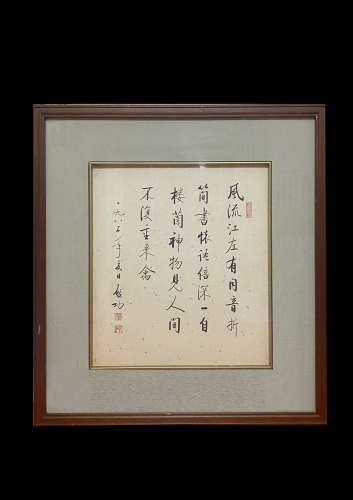 風流江左有同音折
簡書懷語倍深一自
樓蘭神物見人間
不復重來禽
一九八三年夏日啓功